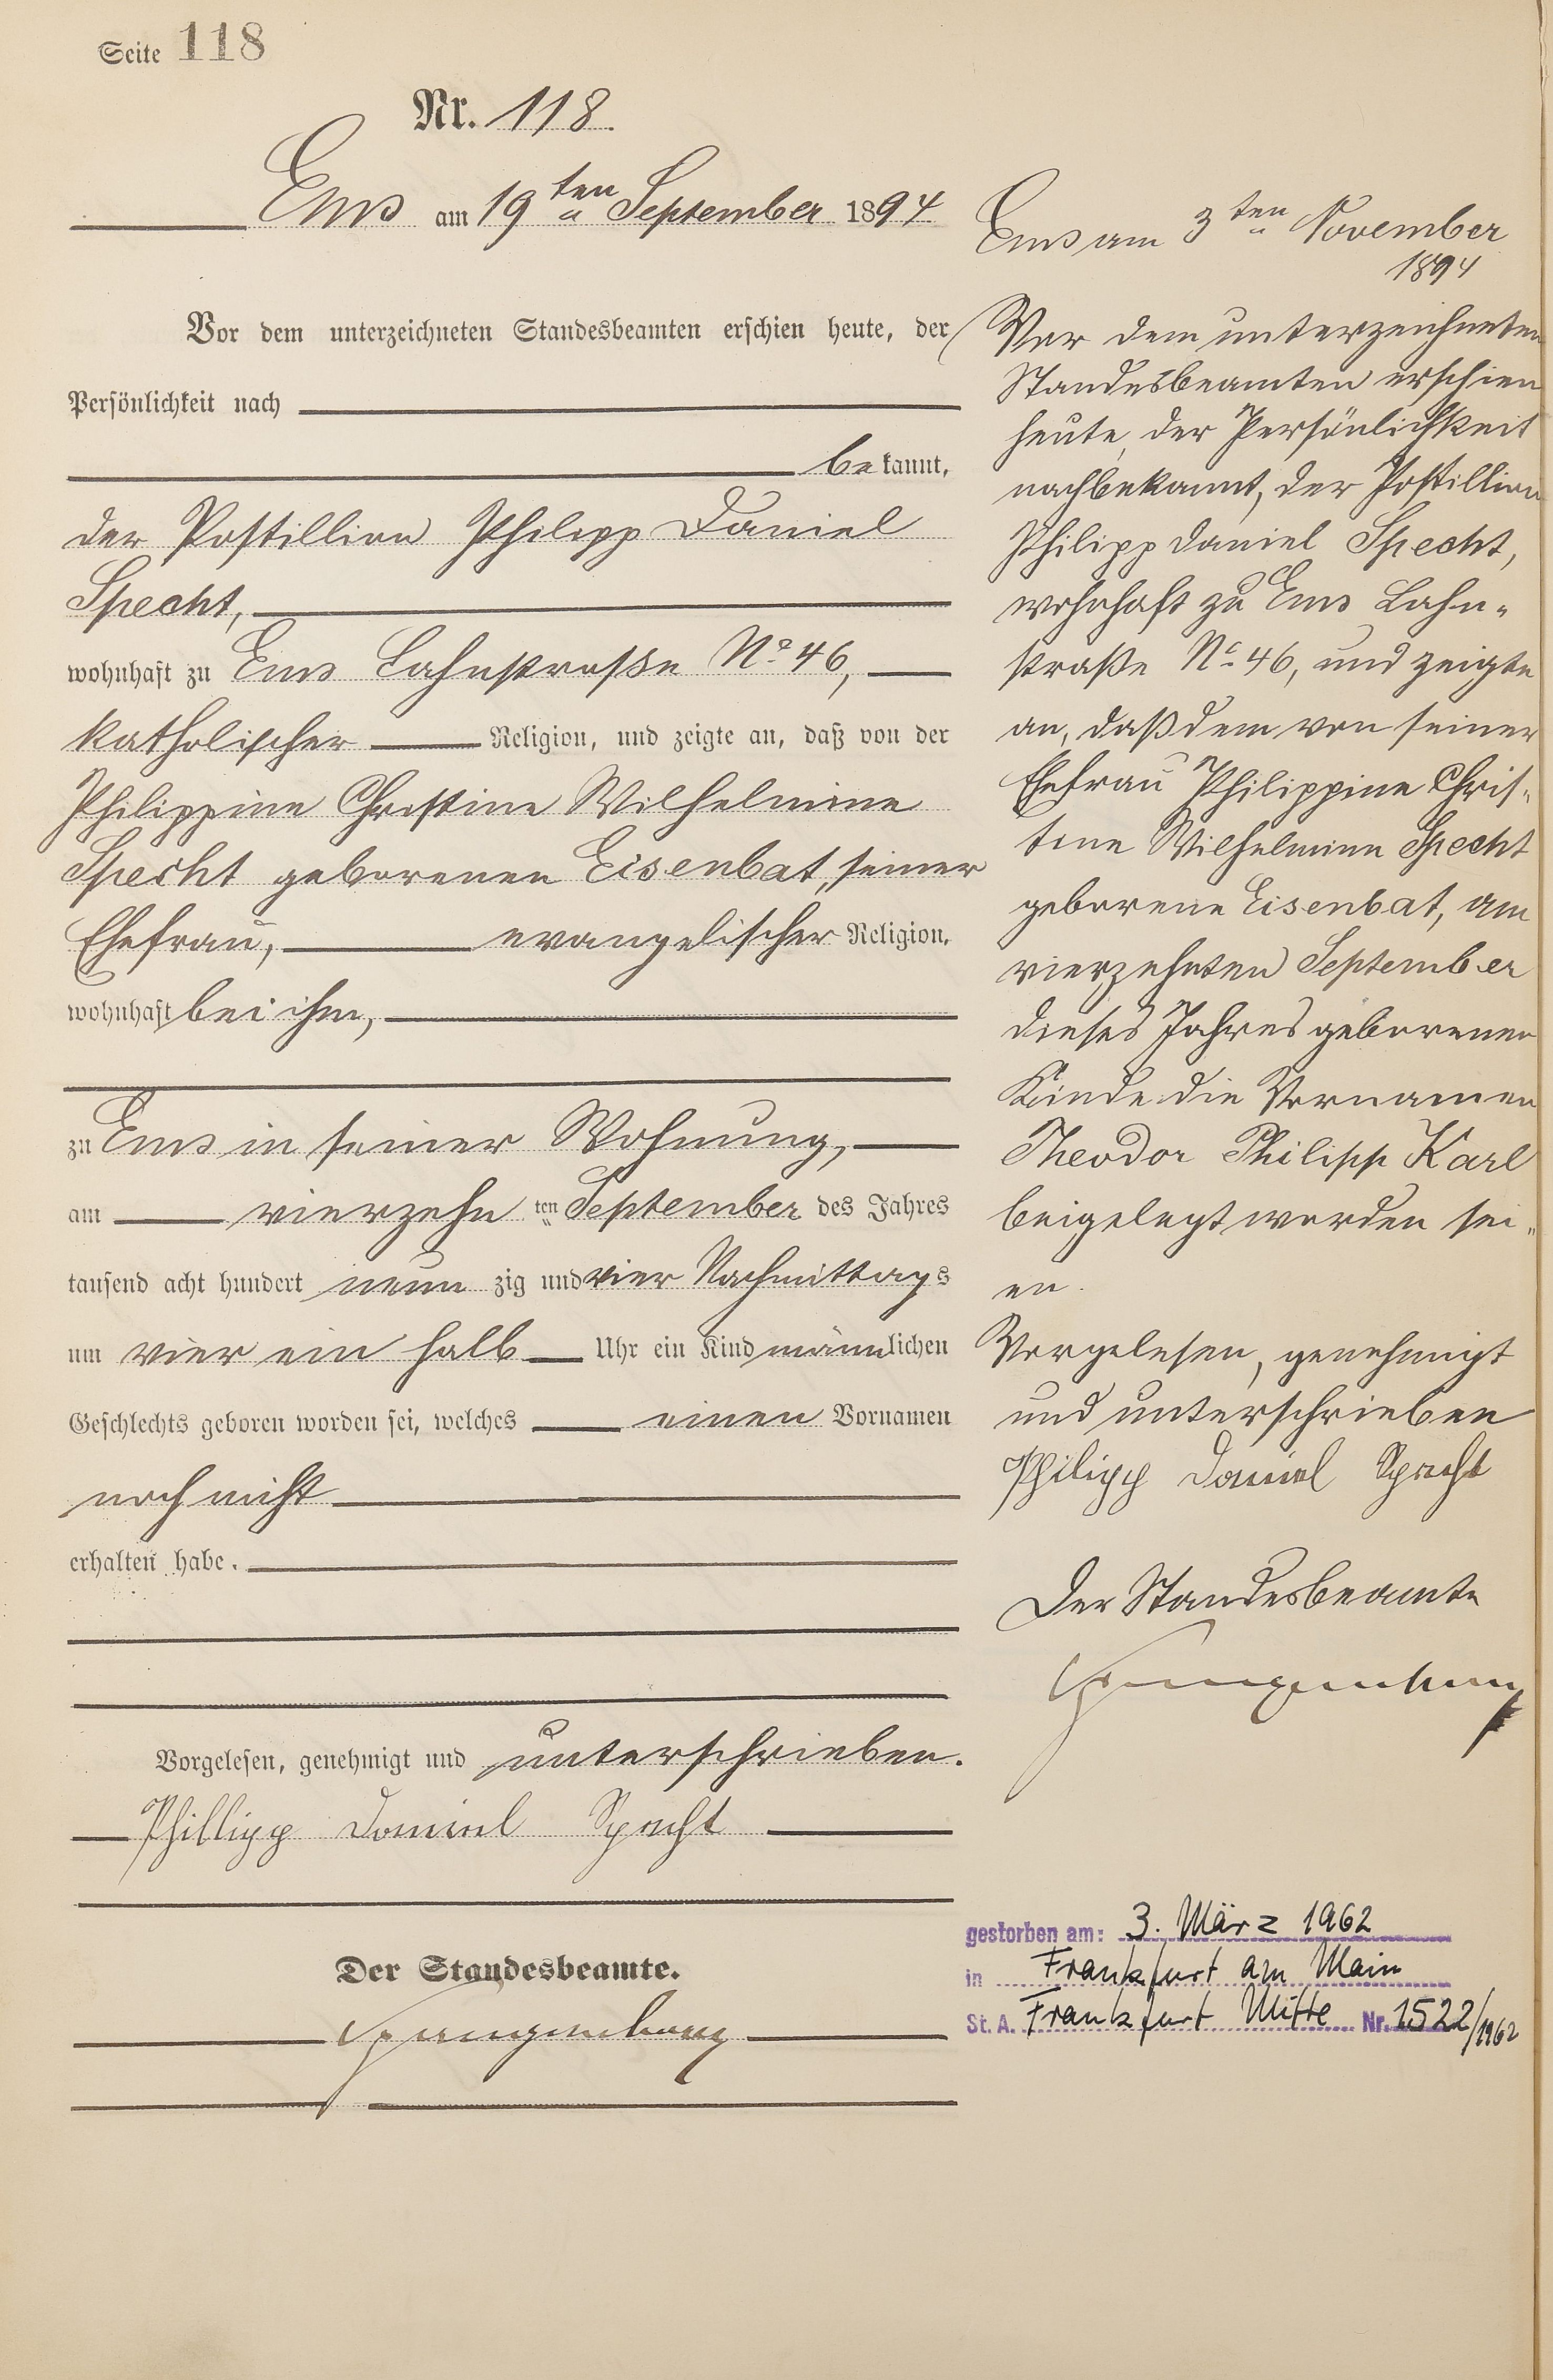 Seite 118
Nr. 118.
Ems am 19ten September 1894
Vor dem unterzeichneten Standesbeamten erschien heute, der
Persönlichkeit nach
bekannt,
der Postillion Philipp Daniel
Specht,
wohnhaft zu Ems Lahnstraße No 46,
katholischer Religion, und zeigte an, daß von der
Philippine Christine Wilhelmine
Specht geborenen Eisenbat, seiner
Ehefrau, evangelischer Religion,
wohnhaft bei ihm,
zu Ems in seiner Wohnung,
am vierzehn ten September des Jahres
tausend acht hundert neun zig und vier Nachmittags
um vier ein halb Uhr ein Kind männlichen
Geschlechts geboren worden sei, welches einen Vornamen
noch nicht
erhalten habe.
Vorgelesen, genehmigt und unterschrieben.
Phillipp Daniel Specht
Der Standesbeamte.
Ems am 3ten November
1894
Vor dem unterzeichneten
Standesbeamten erschien
heute, der Persönlichkeit
nach bekannt, der Postillion
Philipp Daniel Specht,
wohnhaft zu Ems Lahn-
straße No 46, und zeigte
an, daß dem von seiner
Ehefrau Philippine Chris-
tine Wilhelmine Specht
geborene Eisenbat, am
vierzehnten September
dieses Jahres geborenen
Kinde die Vornamen
Theodor Philipp Karl
beigelegt worden sei-
en.
Vorgelesen, genehmigt
und unterschrieben
Philipp Daniel Specht
Der Standesbeamte
gestorben am: 3. März 1962
in Frankfurt am Main
St. A. Frankfurt Mitte Nr. 1522/1962